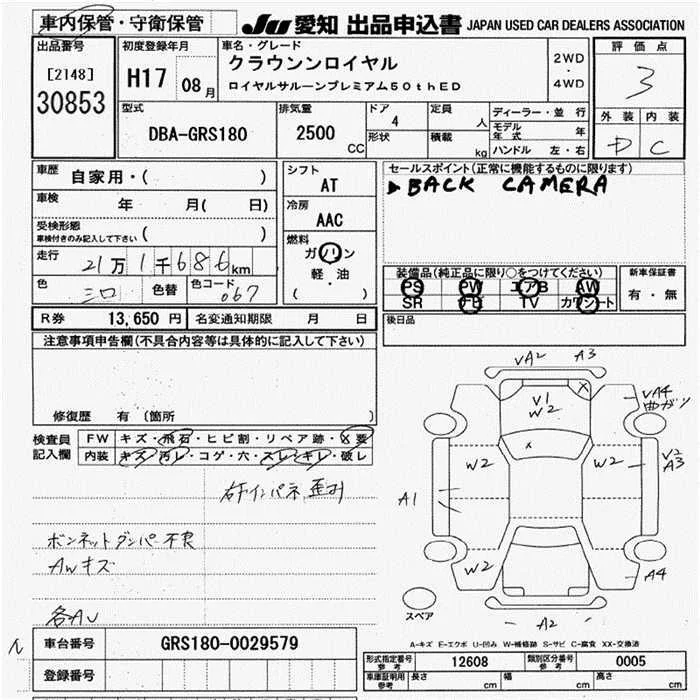 車内保管・守衛保管
JU 愛知 出品申込書 JAPAN USED CAR DEALERS ASSOCIATION
出品番号
[2148]
30853
初度登録年月
H17 08月
車名・グレード
クラウンンロイヤル
ロイヤルサルーンプレミアム50thED
2WD
・
4WD
評価点
3
外装 内装
D C
型式
DBA-GRS180
排気量
2500 CC
ドア
4
形状
定員
人
積載
kg
ディーラー・並行
モデル年式 年
ハンドル 左・右
車歴
自家用・( )
車検
年 月( 日)
受検形態
車検付きのみ記入して下さい ( )
走行
21万1千686km
色
シロ
色替
色コード
067
シフト
AT
冷房
AAC
燃料
ガソリン
軽・油
( )
セールスポイント(正常に機能するものに限ります)
▶BACK CAMERA
装備品(純正品に限り○をつけてください)
PS PW エアB AW
SR ナビ TV カワシート
新車保証書
有・無
後日品
R券 13,650 円 名変通知期限 月 日
注意事項申告欄(不具合内容等は具体的に記入して下さい)
修復歴 有 (箇所 )
検査員
記入欄
FW キズ・飛石・ヒビ割・リペア跡・X要
内装 キズ・汚レ・コゲ・穴・スレ・キレ・破レ
右インパネ歪み
ボンネットダンパー不良
AWキズ
各AU
VA2 A3
V1
W2
X
VA4
曲ガリ
x
W2 W2
V2
A3
A1
W2
A4
A2
スペア
A-キズ E-エクボ U-凹み W-補修跡 S-サビ C-腐食 XX-交換済
車台番号 GRS180-0029579
登録番号
形式指定番号 参考 12608 類別区分番号 参考 0005
車庫証明用 参考 長さ cm 幅 cm 高さ cm